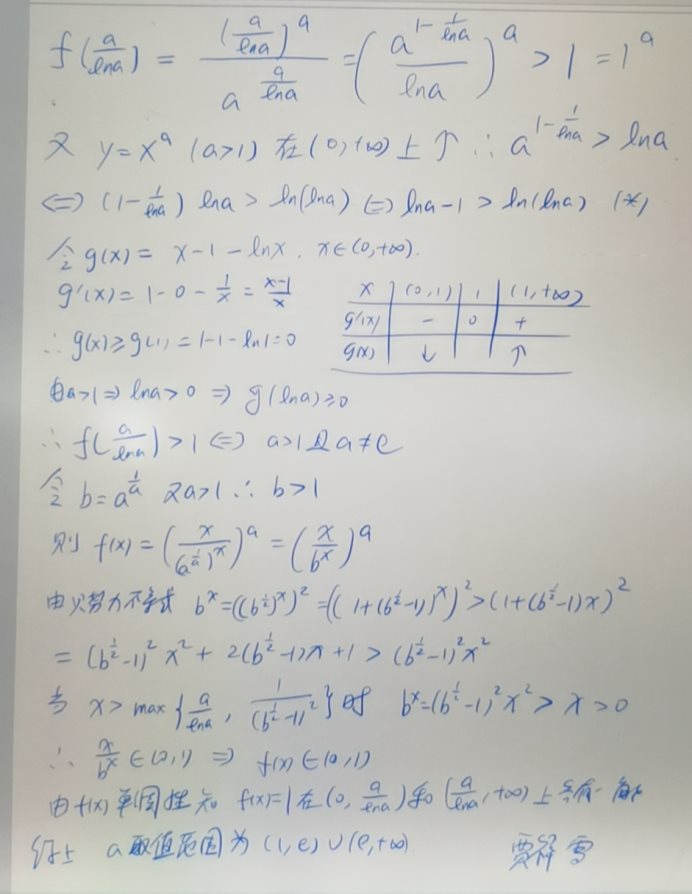 f(a/lna) = (a/lna)^a / a^(a/lna) = (a^(1-1/lna) / lna)^a > 1 = 1^a
又 y=x^a (a>1) 在(0,+∞)上↑ ∴ a^(1-1/lna) > lna
⇔ (1-1/lna) lna > ln(lna) ⇔ lna-1 > ln(lna) (*)
令 g(x) = x-1-lnx, x∈(0,+∞).
g'(x) = 1-0-1/x = (x-1)/x
∴ g(x)≥g(1) = 1-1-ln1=0
x (0,1) 1 (1,+∞)
g'(x) - 0 +
g(x) ↓ ↑
由a>1⇒lna>0 ⇒ g(lna)≥0
∴ f(a/lna)>1 ⇔ a>1且a≠e
令 b=a^(1/a) 又a>1 ∴ b>1
则 f(x) = (x/(a^(1/a))^x)^a = (x/b^x)^a
由贝努力不等式 b^x=((b^(1/2))^x)^2=((1+(b^(1/2)-1))^x)^2>(1+(b^(1/2)-1)x)^2
= (b^(1/2)-1)^2 x^2 + 2(b^(1/2)-1)x+1 > (b^(1/2)-1)^2 x^2
当 x> max{a/lna, 1/(b^(1/2)-1)^2}时 b^x=(b^(1/2)-1)^2 x^2 > x > 0
∴ x/b^x ∈(0,1) ⇒ f(x)∈(0,1)
由f(x)单调性知 f(x)=1在(0, a/lna)和(a/lna, +∞)上各有一解
综上 a取值范围为 (1,e)∪(e,+∞). 贾 雪